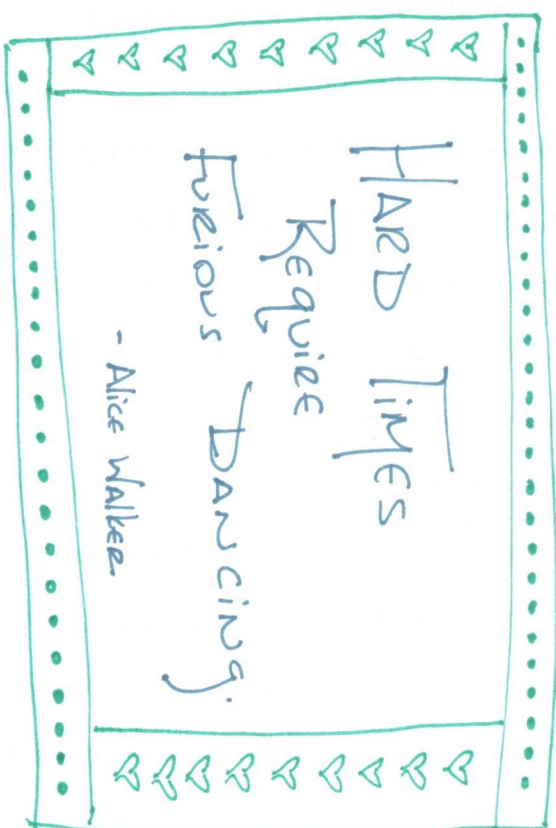 HARD TIMES
REQUIRE
FURIOUS DANCING.
- Alice Walker